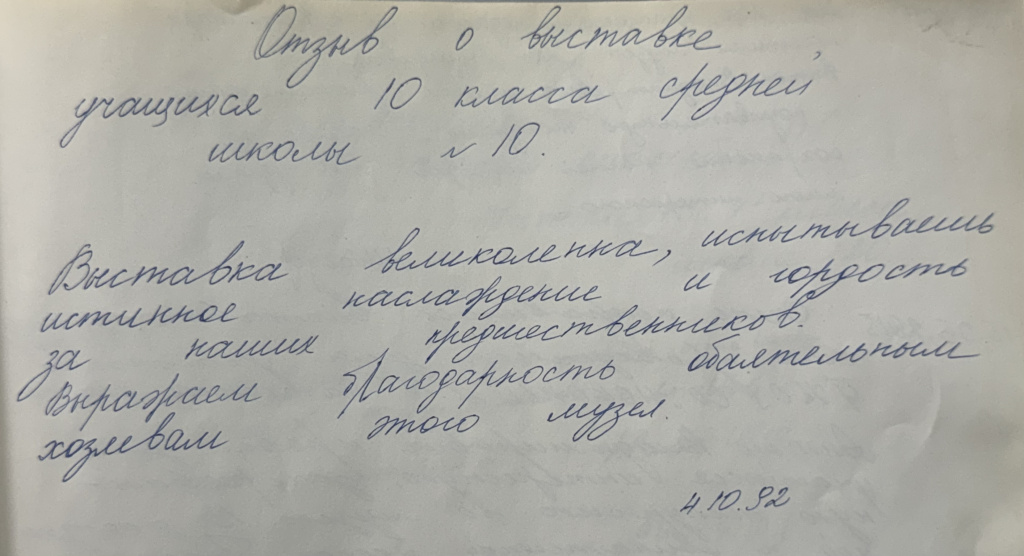 Отзыв о выставке
учащихся 10 класса средней
школы № 10.
Выставка великолепна, испытываешь
истинное наслаждение и гордость
за наших предшественников.
Выражаем благодарность обаятельным
хозяевам этого музея.
4.10.92